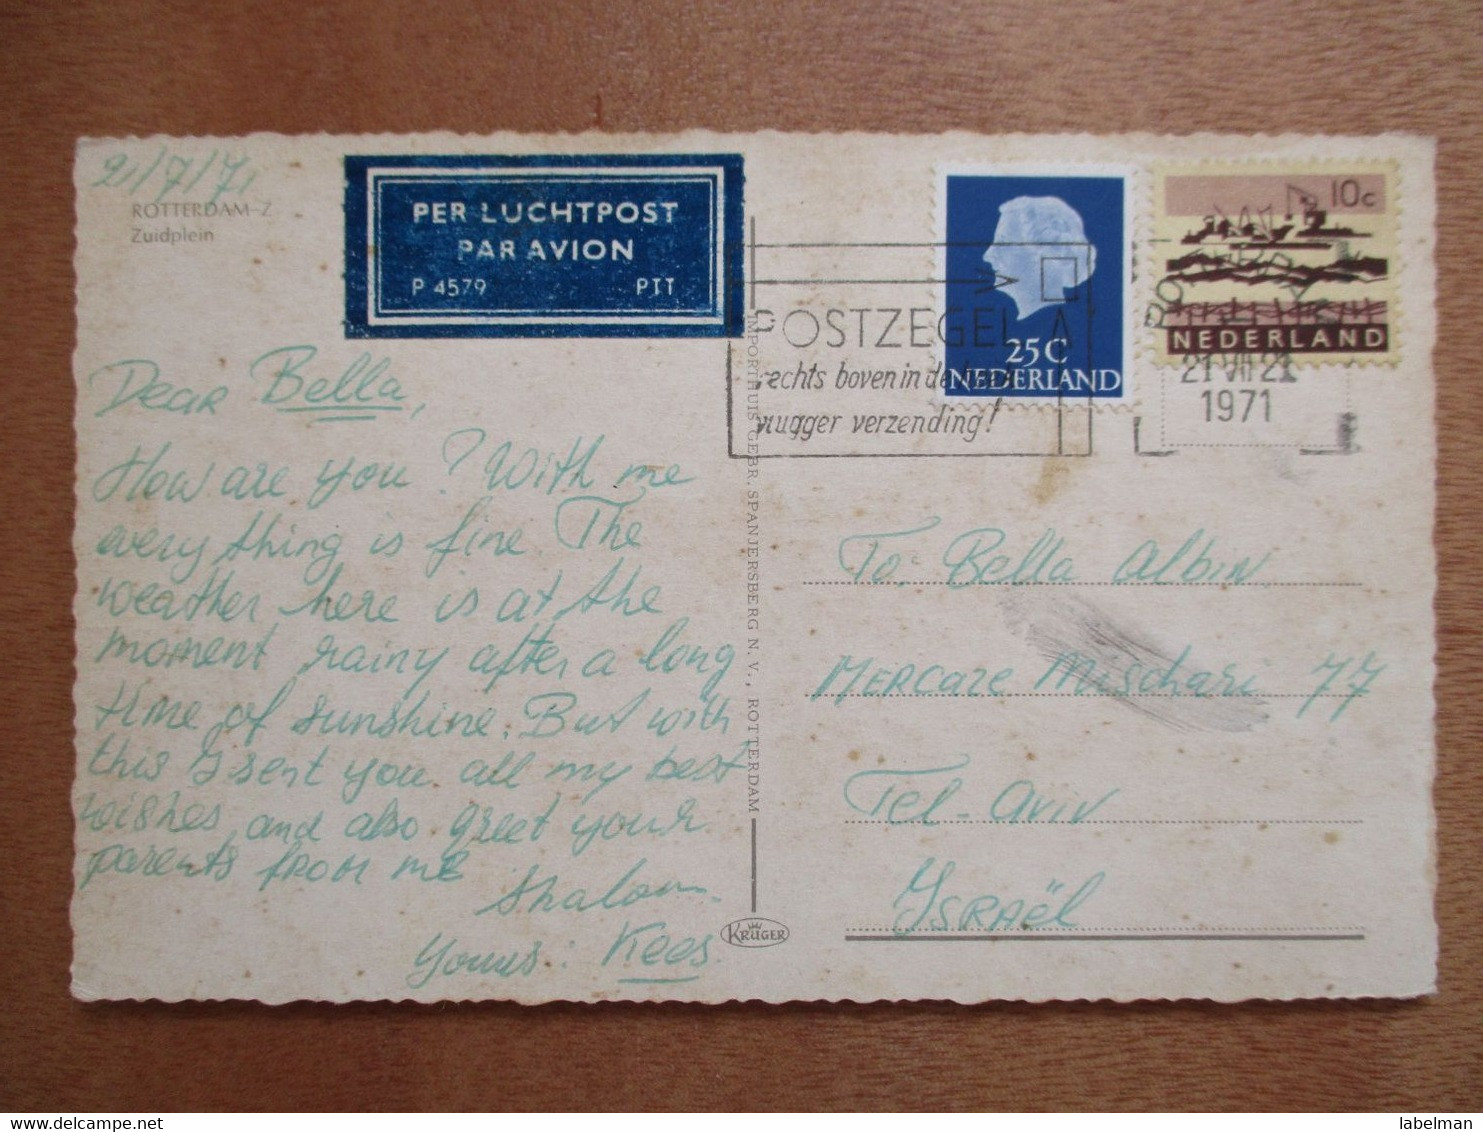 21/7/71
ROTTERDAM-Z
Zuidplein
PER LUCHTPOST
PAR AVION
P 4579 PTT
Dear Bella,
How are you? With me
every thing is fine The
weather here is at the
moment rainy after a long
time of sunshine. But with
this I sent you all my best
wishes and also greet your
parents from me
Shalom
Yours: Kees.
IMPORTHUIS GEBR. SPANJERSBERG N.V., ROTTERDAM
KRÜGER
POSTZEGEL
rechts boven in de
vlugger verzending!
25C
NEDERLAND
10c
NEDERLAND
21 VII 21
1971
To: Bella Albin.
MERCAZE Mischari 77
Tel-Aviv
ISRAËL
labelman
www.delcampe.net